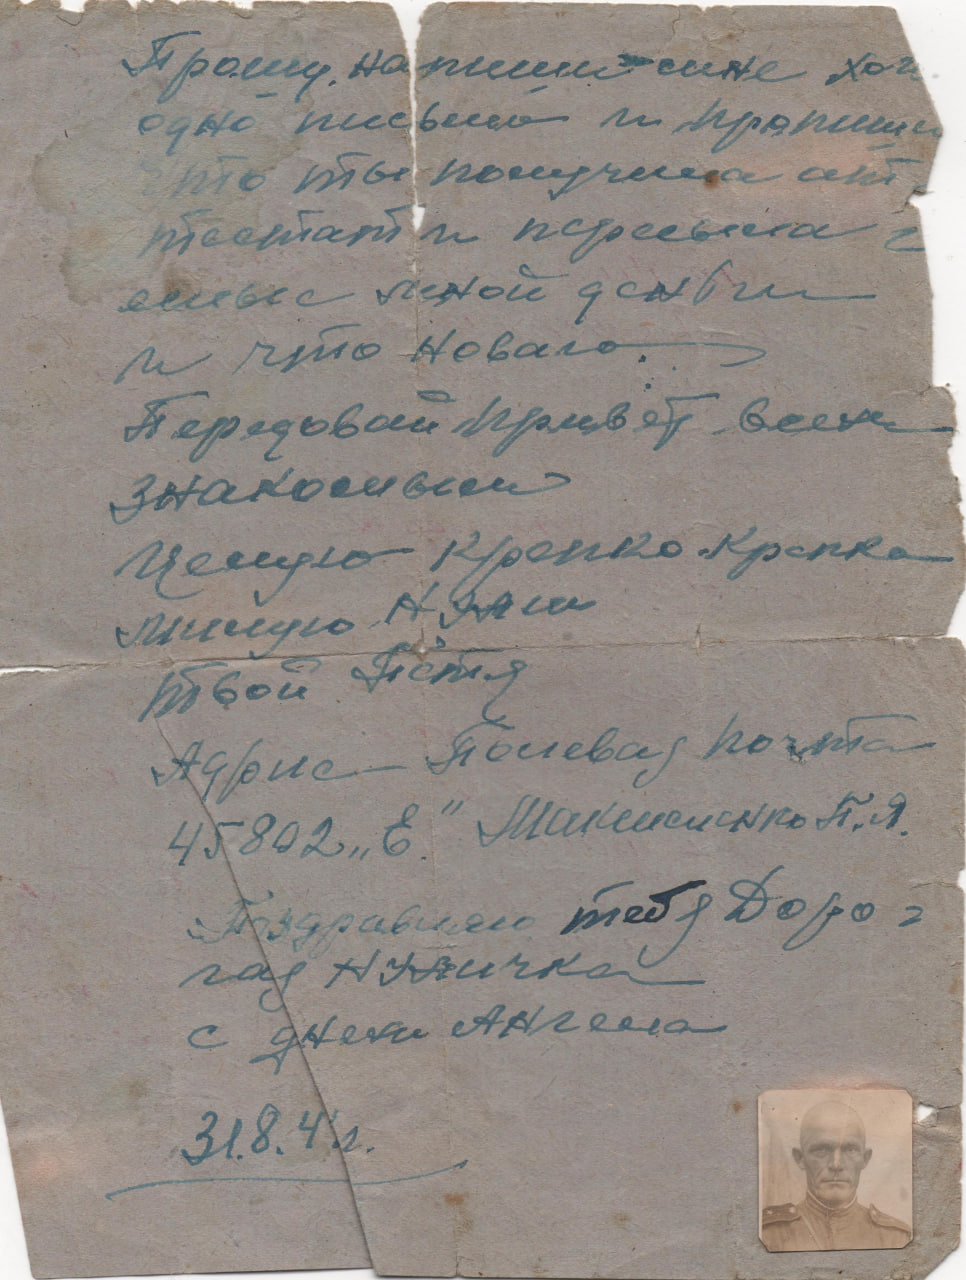 Прошу, напиши мне хот
одно письмо и пропиши
что ты получила ат-
тестат и
мной деньги
и что новаго.
Передовай привет всем
знакомым
Целую крепко-крепко
милую Нуяш
твой Петя
Адрис Полевая почта
45802 „Е" Макисменко П.Я.
Поздравляю тебя Доро-
гая Нуяичка
с днем Ангела
31.8.4 г.